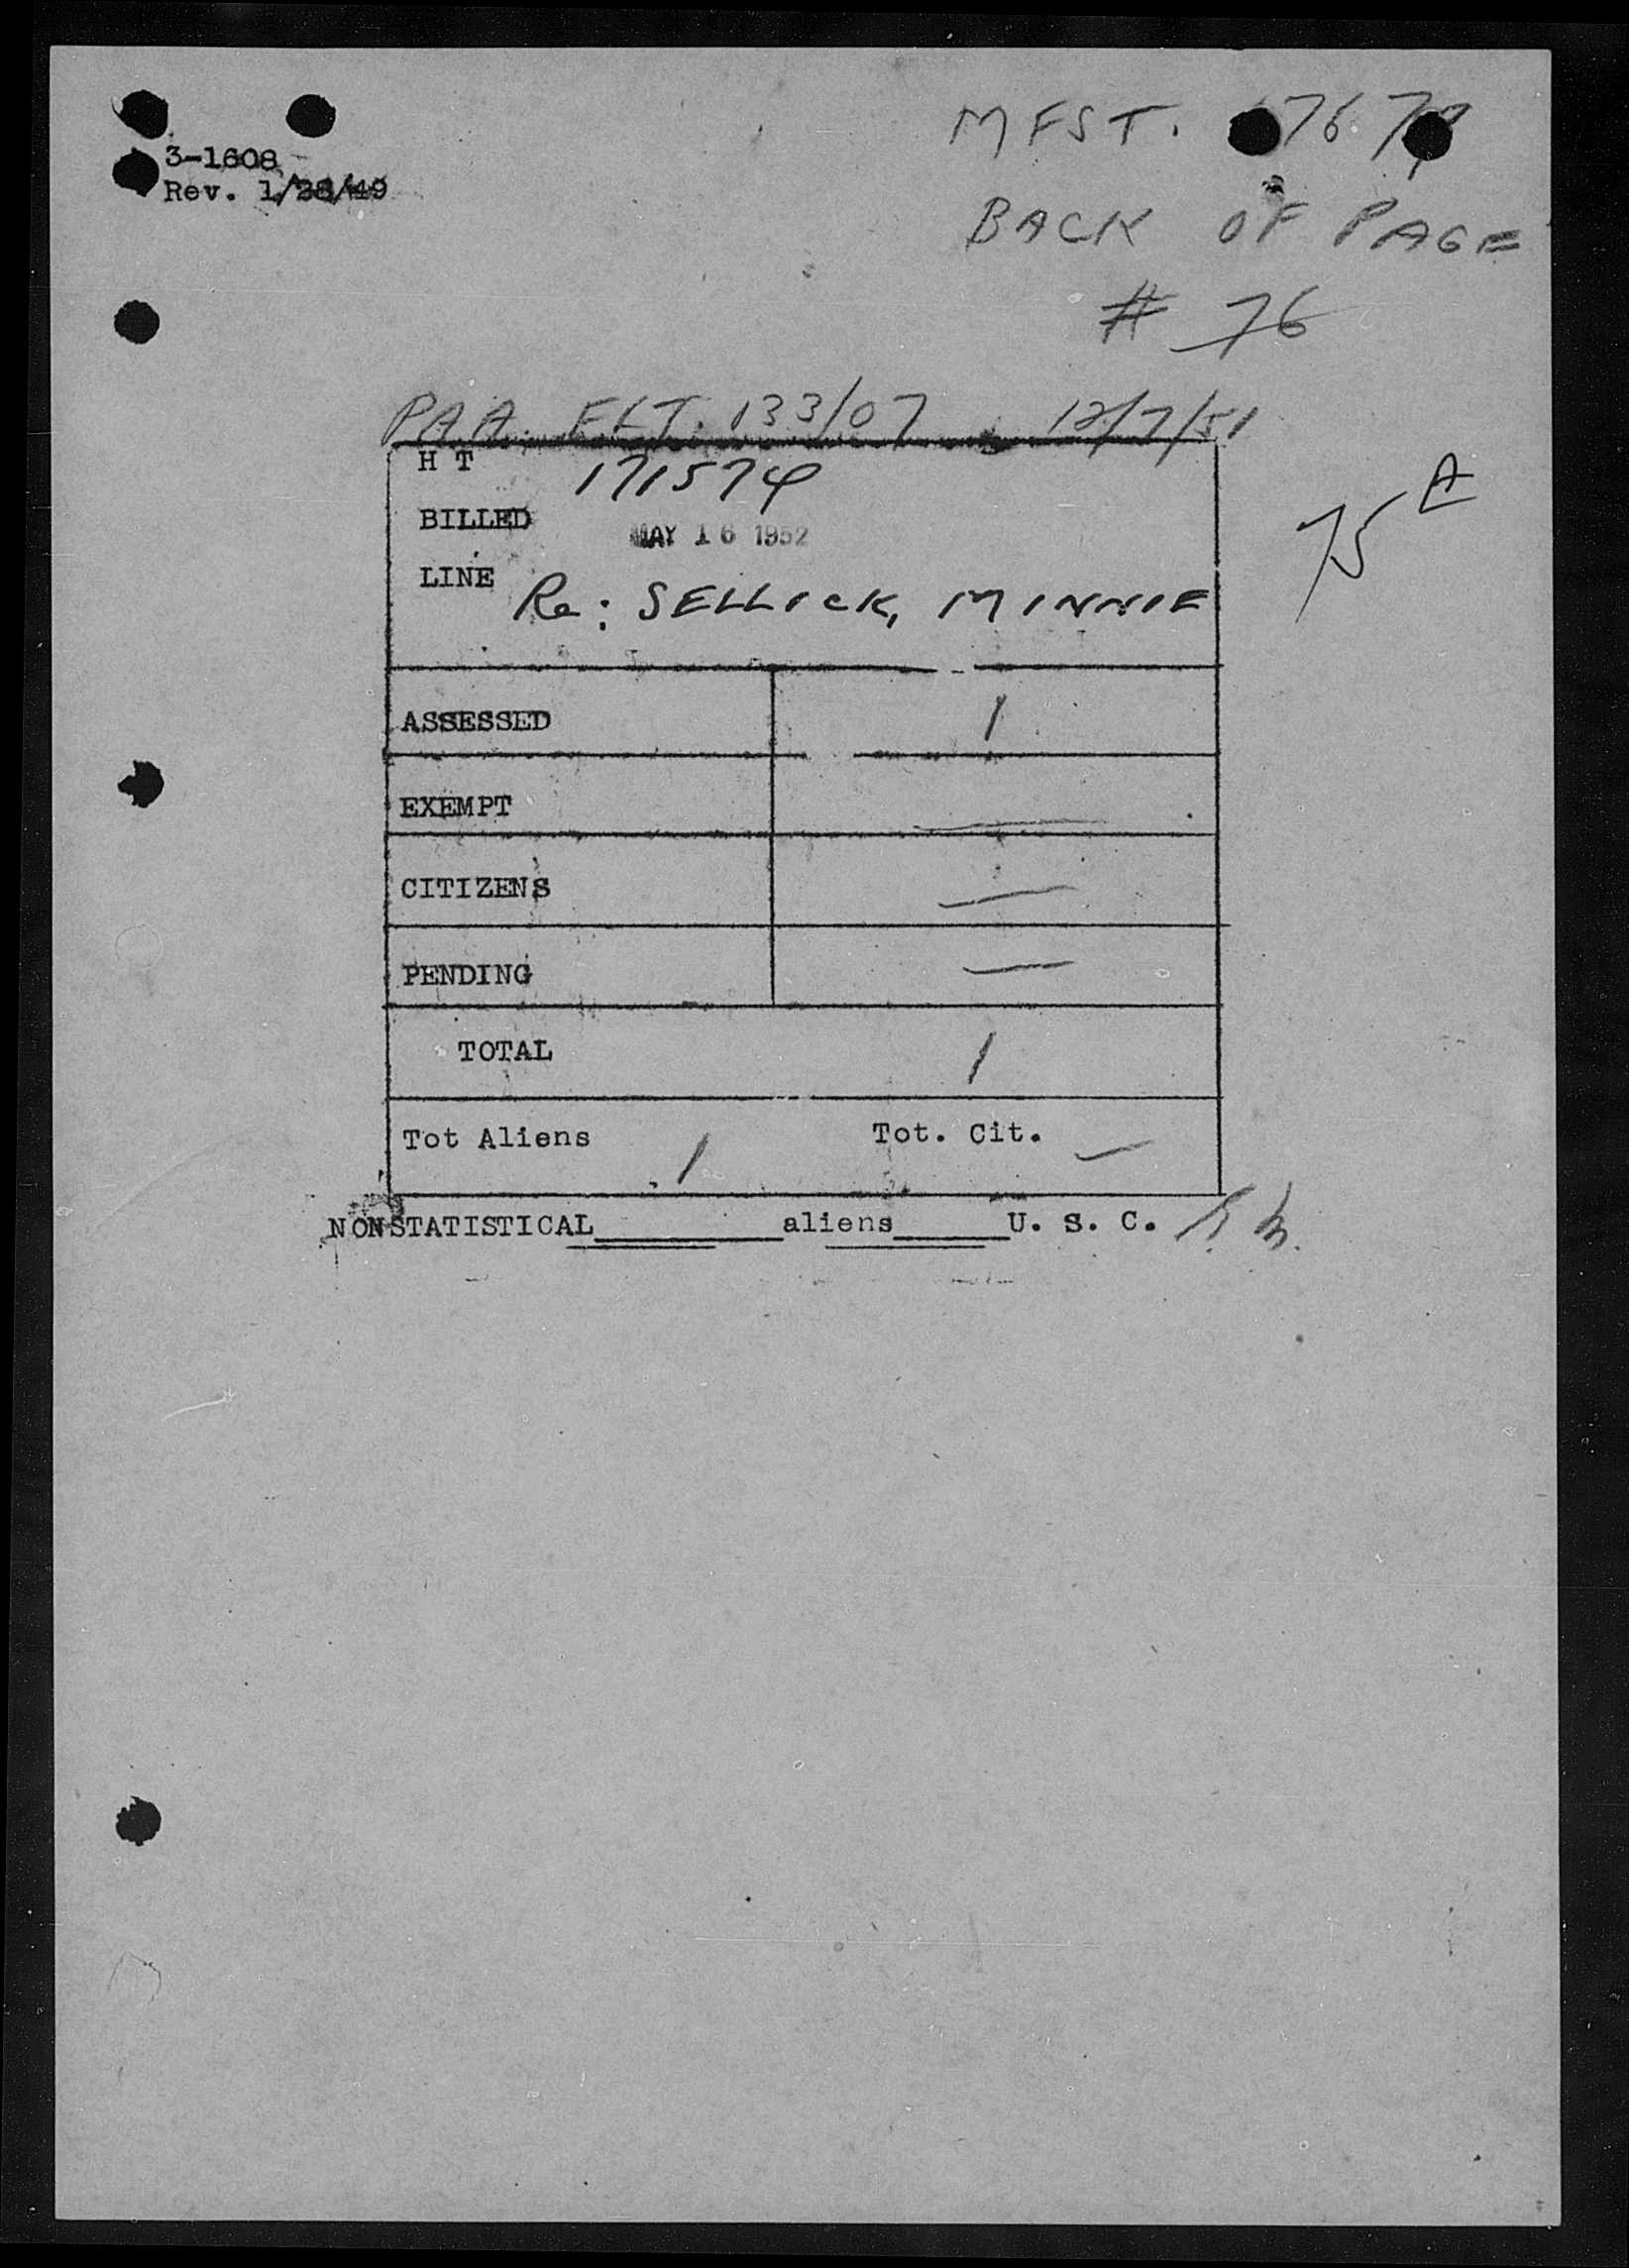 3-1608
Rev. 1/28/49
MFST.
BACK OF PAGE
# 76
PAA. FLT. 133/07 12/7/51
H T 171574
BILLED MAY 16 1952
LINE Re: SELLICK, MINNIE
75 A
ASSESSED 1
EXEMPT —
CITIZENS —
PENDING —
TOTAL 1
Tot Aliens 1 Tot. Cit. —
NONSTATISTICAL________aliens_____U. S. C.